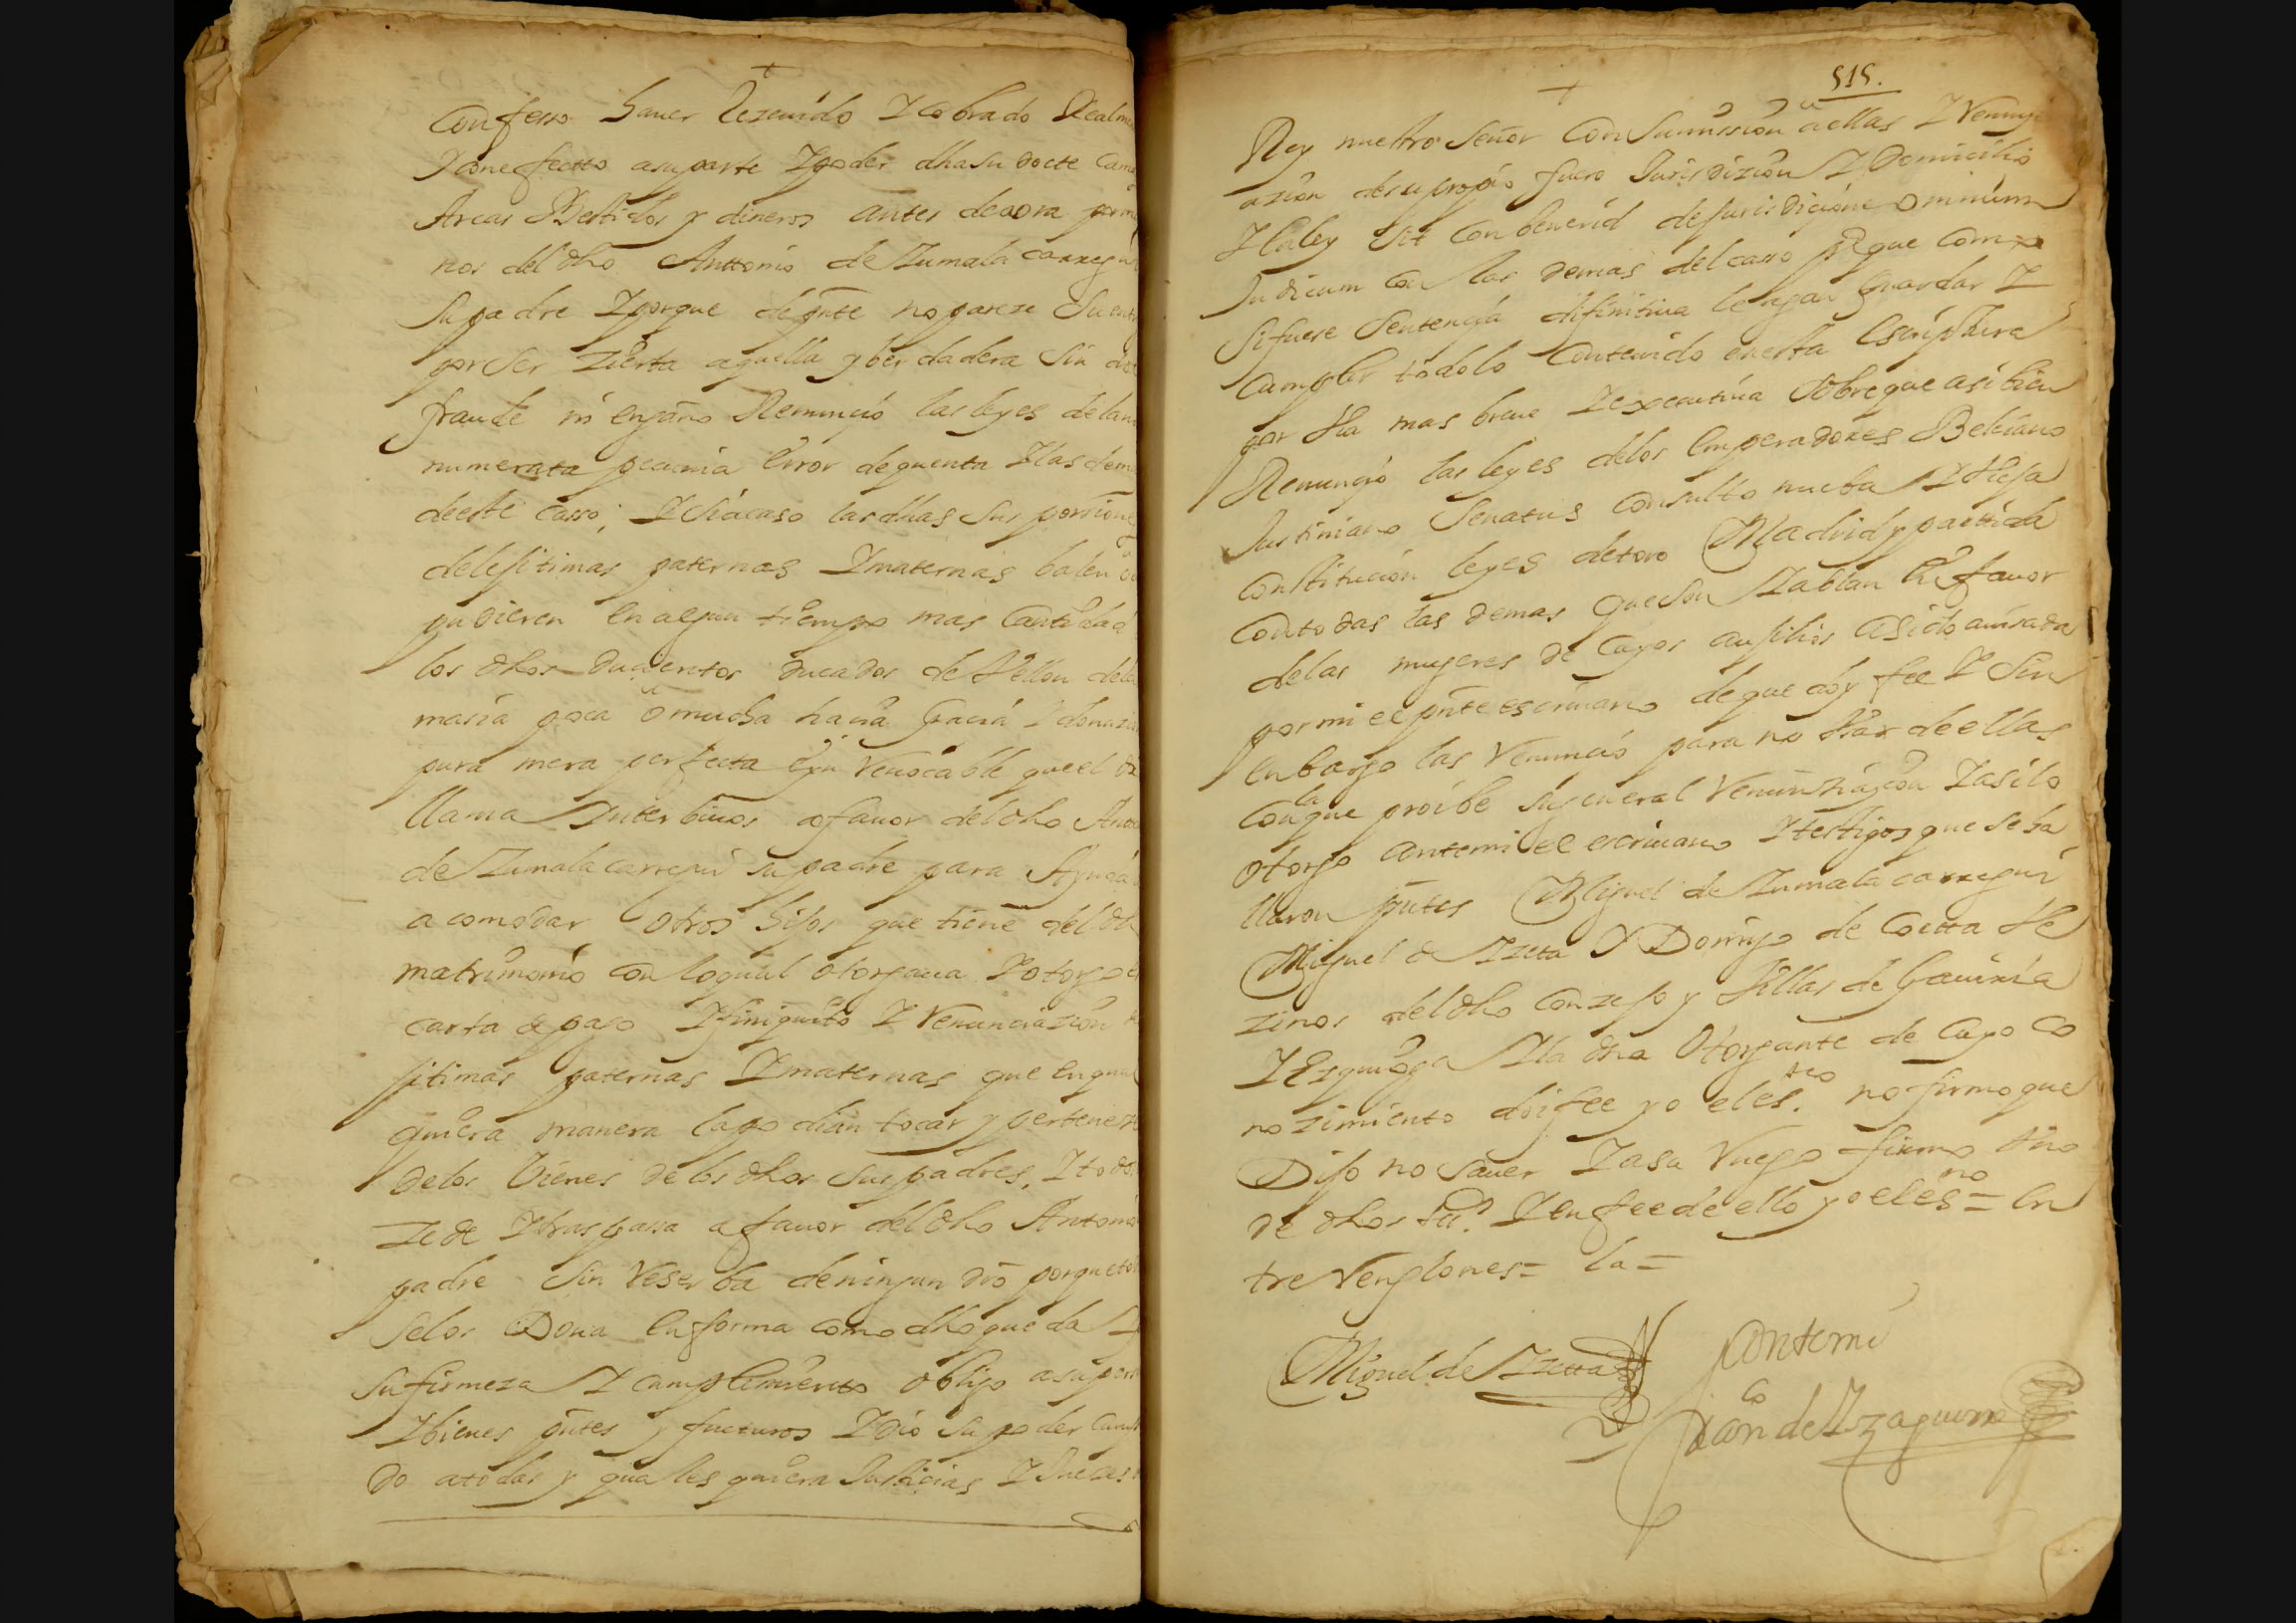 +
Confesso hauer Rezeuido Y Cobrado Realme
Y con efectto a su parte Y poder dha su docte Cama
Arcas Bestidos y dineros antes de aora por ma
nos del dho Anttonio de Zumala carregui
Su padre Y porque de pnte no pareze Su entr
por Ser zierta aquella y berdadera Sin do
fraude ni engaño Renunçio las leyes de la no
numerata pecunia Error de quenta Y las dema
de este Casso; Y Si acaso las dhas Sus porzione
de lesitimas paternas Y maternas balen o
pudieren en algun tiempo mas Cantidad
los dhos duçientos ducados de Vellon de la
masia poca o mucha haçia Gracia Y donazio
pura mera perfecta e yn Reuocable que el
llama Ynter biuos a fauor del dho Anto
de Zumalacarregui su padre para Ayuda
acomodar otros hijos que tiene del dh
matrimonio con lo qual otorgaua Y otorgo
carta de pago Y finiquito Y Renunciazion
sitimas paternas Y maternas que en qual
quiera manera la podian tocar y pertenez
de los bienes de los dhos Sus padres, Y todo
zede Y traspassa a fauor del dho Antonio
padre Sin Reserba de ningun dro porque to
Se los Dona En forma como dho queda Y
Su firmeza Y cumplimiento obligo a su pers
Y bienes pntes y futturos Y dio Su poder Cumpl
do a todas y quales quiera Justicias Y Juezes
515.
+
Rey nuestro Señor Con Sumission a ellas Y Renunçi
azion de su propio fuero Jurisdizion Y Domicilio
Y la ley Sit Conbenerid de Jurisdicione Ominium
Judicum Con las demas del casso pa que Como
Si fuese Sentençia difinitiua le agan guardar Y
Cumplir todo lo Contenido en esta Escriptura
por Via mas breue Y executiua Sobre que asi bien
Renunçio las leyes de los Emperadores Beleiano
Justiniano Senatus Consulto nueba Y Viesa
Constitucion leyes de toro Madrid y partida
Con todas las demas que Son Y ablan En fauor
de las mugeres de Cuyos ausilios a Sido auisada
por mi el pnte escriuano de que doy fee Y Sin
Enbargo las Renuncio para no Vsar de ellas
la
Con que proibe Su general Renunziaçion Y asi lo
otorgo ante mi el escriuano Y testigos que se ha
llaron pntes Miguel de Zumalacarregui
Miguel de Yzeta Y Domingo de Goitta Ve
zinos del dho Conzejo y Villas de Gauiria
Y Ezquioga Y la dha Otorgante de Cuyo Co
nozimiento doi fee yo el es.no no firmo que
Dijo no Sauer Y a su Ruego firmo Vno
de dhos tts Y en fee de ello yo el es.no = En
tre Renglones = la =
Miguel de Yzetta
Ante mi
Juan de Yzaguirre